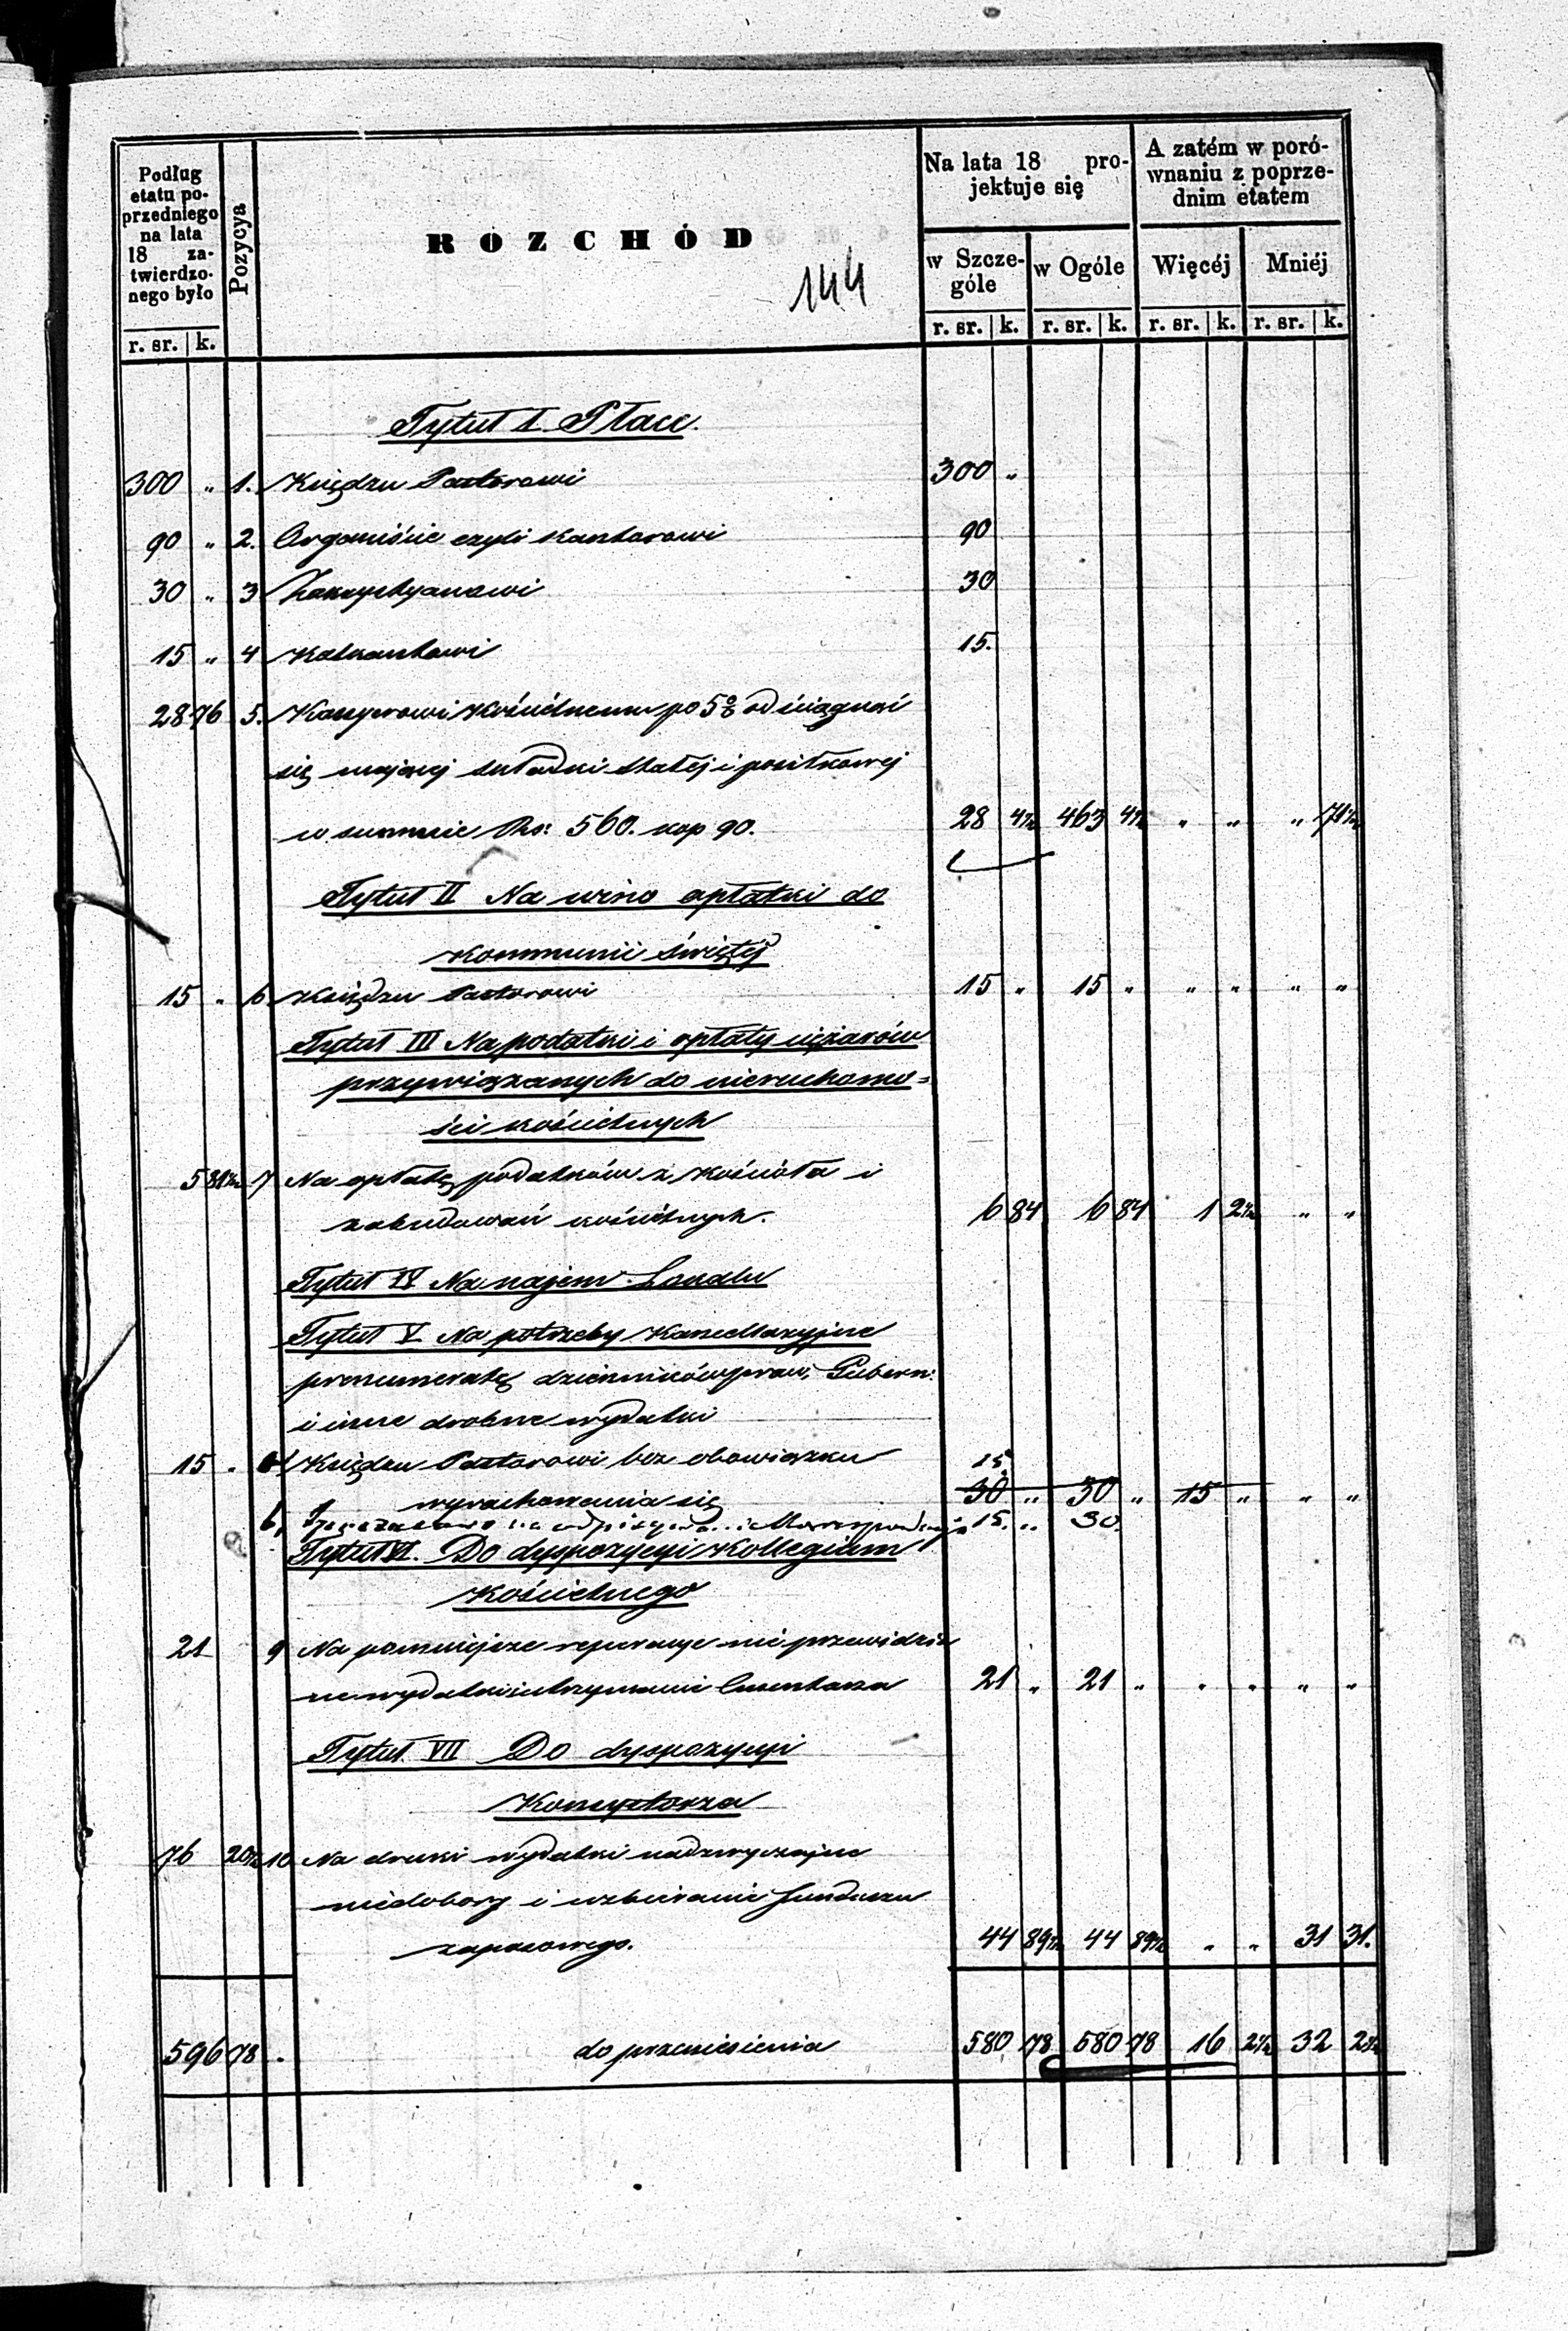 Podług etatu poprzedniego na lata 18 zatwierdzonego było
Pozycya
ROZCHÓD
144
Na lata 18 projektuje się
A zatém w porównaniu z poprzednim etatem
w Szczególe
w Ogóle
Więcéj
Mniéj
r. sr. k. r. sr. k. r. sr. k. r. sr. k. r. sr. k.
Tytuł I Płace.
300 " 1. Księdzu Pastorowi 300 "
90 " 2. Organiście czyli Kantorowi 90
30 " 3 Zakrystyanowi 30
15 " 4 Kalkantowi 15.
28 76 5. Kassyerowi Kościelnemu po 5% od ściągnąć
się mającej składki stałej i posiłkowej
w summie Rs: 560. kop 90. 28 4½ 463 4½ " " " 71½
Tytuł II Na wino opłatki do
Kommunii Świętej
15 " 6 Księdzu Pastorowi 15 " 15 " " " " "
Tytuł III Na podatki i opłaty ciężarów
przywiązanych do nieruchomo=
ści kościelnych
5 81½ 7 Na opłatę podatków z Kościoła i
zabudowań kościelnych. 6 84 6 84 1 2½ " "
Tytuł IV Na najem Lokalu
Tytuł V Na potrzeby Kancellaryjne
prenumeratę dzienników praw, Gubern:
i inne drobne wydatki
15 " Księdzu Pastorowi bez obowiązku 15.
wyrachowania się 30 " 30 " 15 " " "
b, i Korrespondencja 15. " 30.
Tytuł VI. Do dyspozycyi Kollegium
Kościelnego
21 9 Na pomniejsze reperacye nie przewidzia
ne wydatki i utrzymanie Cmentarza 21 " 21 " " " " "
Tytuł VII Do dyspozycyi
Konsystorza
76 20½ 10 Na druki wydatki nadzwyczajne
niedobory i uzbieranie funduszu
zapasowego. 44 89½ 44 89½ " " 31 31.
596 78 . do przeniesienia 580 78 580 78 16 2½ 32 2½